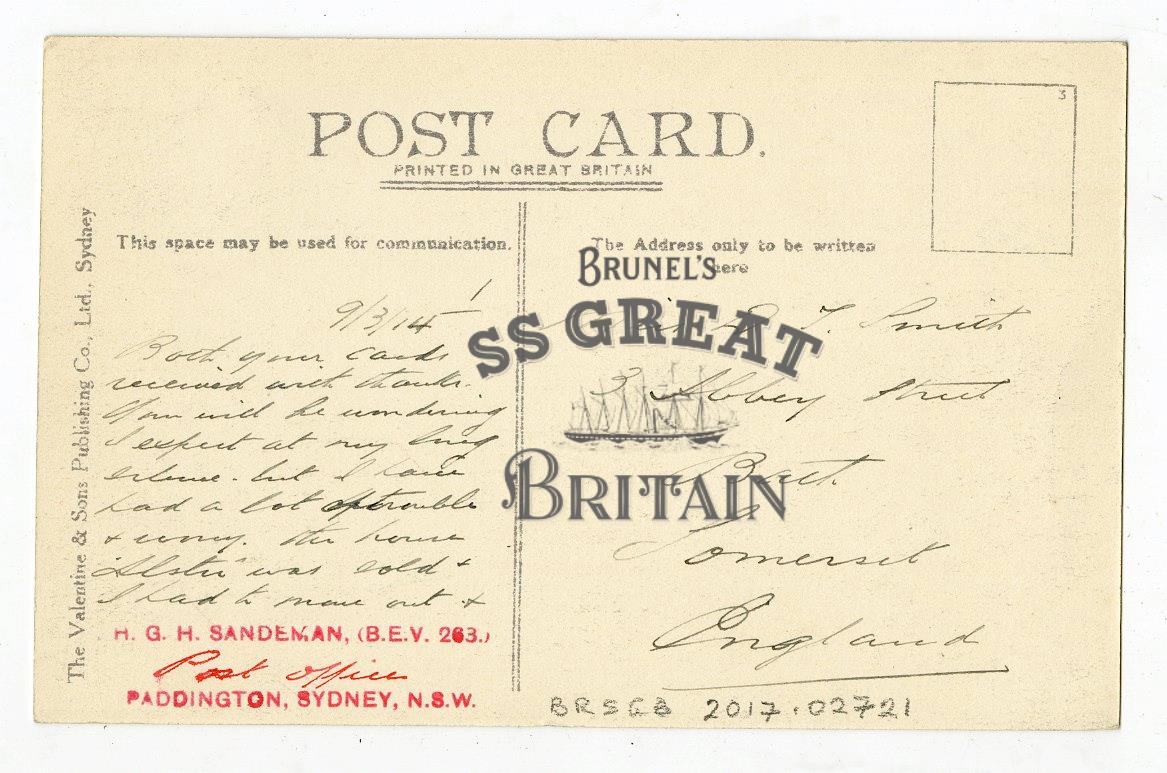 POST CARD.
PRINTED IN GREAT BRITAIN
3
The Valentine & Sons Publishing Co., Ltd., Sydney
This space may be used for communication.
The Address only to be written
here
BRUNEL'S
SS GREAT
BRITAIN
9/3/14
Both your cards
received with thanks.
You will be wondering
I expect at my long
silence. but I have
had a lot of trouble
& worry. The house
was sold &
I had to move out &
H. G. H. SANDEMAN, (B.E.V. 263.)
Post Office
PADDINGTON, SYDNEY, N.S.W.
Smith
3 Abbey Street
Bath
Somerset
England
BRSGB 2017.02721